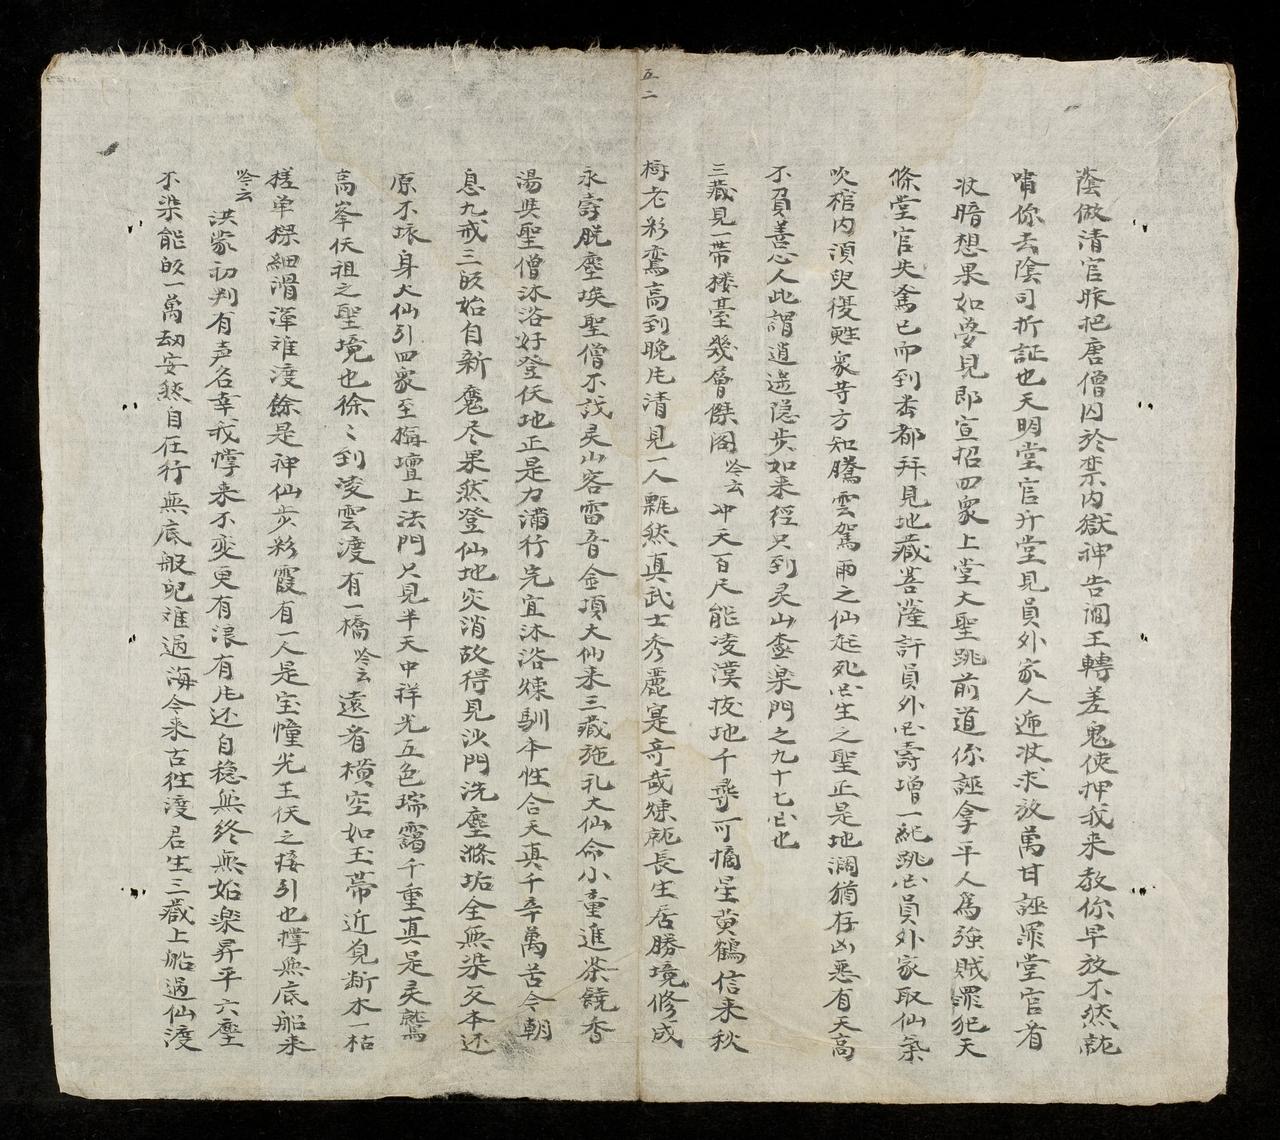 五二
蔭做清官昨把唐僧囚於禁内獄神告阎王轉差鬼使押我来教你早放不然就
啃你去陰司折証也天明堂官升堂見員外家人逓状求放萬甘誣罪堂官看
状暗想果如夢見即宣招四衆上堂大聖跳前道你誣拿平人為強賊罪犯天
條堂官失奪已而到酆都拜見地藏菩薩許員外出壽增一紀跳出員外家取仙氣
吹棺内須臾復甦衆等方知騰雲駕雨之仙起死出生之聖正是地濶猶存凶惡有天高
不負善心人此謂逍遥隐步如来徑只到灵山極楽門之九十七出也
三藏見一帶楼臺幾層傑阁
唫云
冲天百尺能凌漢拔地千尋可摘星黄鶴信来秋
樹老彩鸞高到晚风清見一人飄然真武士秀麗寔奇哉煉就長生居勝境修成
永壽脱塵埃聖僧不識灵山客雷音金項大仙来三藏施礼大仙命小童進茶饒香
湯與聖僧沐浴好登佛地正是力満行完宜沐浴煉馴本性合天真千辛萬苦今朝
息九戒三皈始自新魔尽果然登仙地灾消故得見沙門洗塵滌垢全無染反本还
原不壊身大仙引四衆至梅壇上法門只見半天中祥光五色瑞靄千重真是灵鷲
高峯佛祖之聖境也徐〻到凌雲渡有一橋
唫云
遠看横空如玉帶近覓断木一枯
槎单樑細滑渾难渡餘是神仙步彩霞有一人是宝幢光王佛之接引也撑無底船来
唫云
洪蒙初判有声名幸我撑来不变更有浪有风还自稳無终無始楽昇平六塵
不染能皈一萬劫安然自在行無底般児难過海今来古徃渡君生三藏上船過仙渡